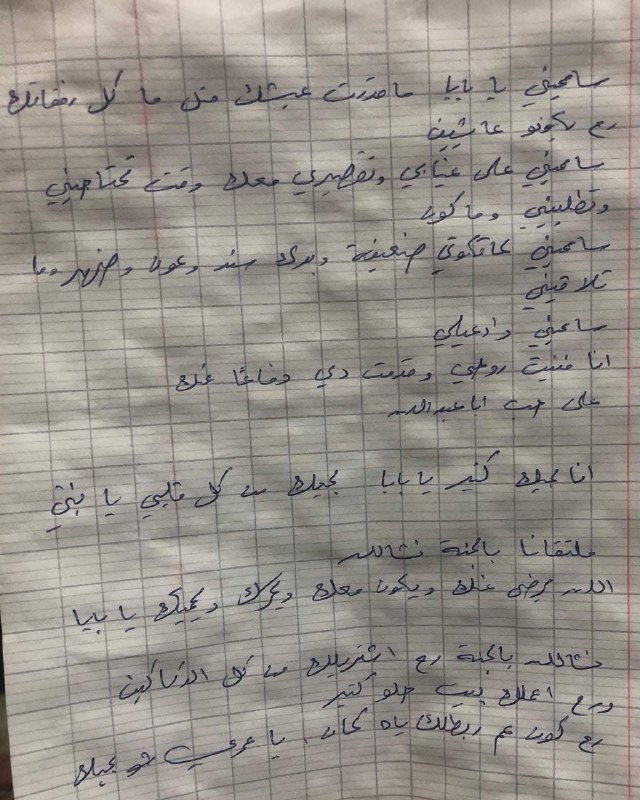 سامحيني يا بابا ما قدرت عيشك متل ما كل رفقاتك
رح يكونو عايشين
سامحيني على غيابي وتقصيري معك وقت تحتاجيني
وتطلبيني وما كون
سامحيني عاتكوني ضعيفة وبدك سند وعون وضهر وما
تلاقيني
سامحيني وادعيلي
انا فنيت روحي وقدمت دمي دفاعا عنك
على حب ابا عبدالله
انا بحبك كتير يا بابا بحبك من كل قلبي يا بنتي
ملتقانا بالجنة نشالله
الله يرضى عنك ويكون معك ويحرسك ويحميك يا بابا
نشالله بالجنة رح اشتريلك من كل الدكاكين
ورح اعملك بيت حلو كتير
رح كون عم ربطلك ياه كمان يا عمري شو بحبك